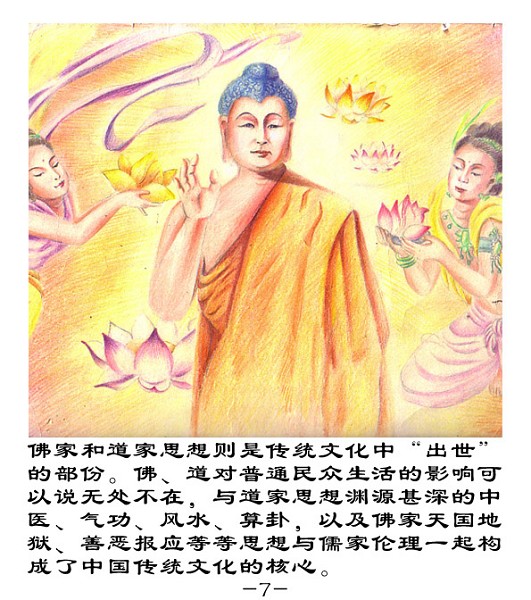 佛家和道家思想则是传统文化中“出世”
的部份。佛、道对普通民众生活的影响可
以说无处不在，与道家思想渊源甚深的中
医、气功、风水、算卦，以及佛家天国地
狱、善恶报应等等思想与儒家伦理一起构
成了中国传统文化的核心。
－7－